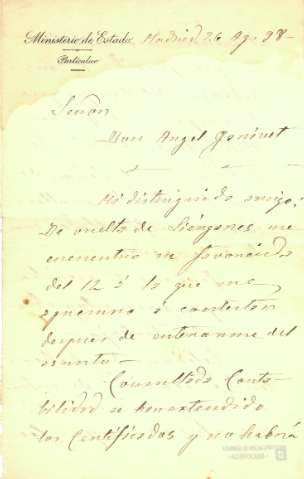 Ministerio de Estado. Madrid 26 Ago 98-
Particular
Señor
Don Angel Ganivet
Mi distinguido amigo:
De vuelta de Liérganes me
encuentro su favorecida
del 12 á la que me
apresuro á contestar
después de enterarme del
asunto -
Consultado Conta-
bilidad se han extendido
los Certificados y no habrá